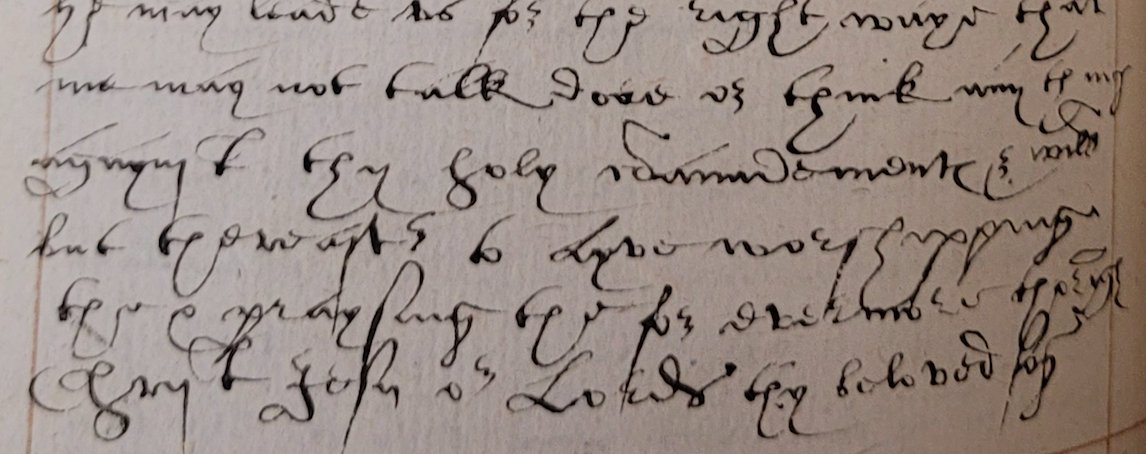 may leade us for the right waye that
we may not talk dooe or think any thing
agaynst thy holy commaundements & will
but thereafter to lyve worshipping
the & praysing the for evermore thorugh
Chryst Jesu or Lorde thy beloved son